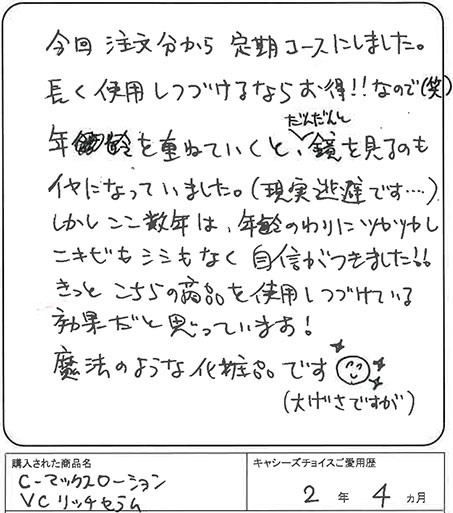 今回 注文分から 定期コースにしました。
長く使用しつづけるならお得!!なので(笑)
だんだんと
年齢を重ねていくと、鏡を見るのも
イヤになっていました。(現実逃避です…)
しかしここ数年は、年齢のわりにツヤツヤし
ニキビもシミもなく 自信がつきました!!
きっと こちらの商品を使用しつづけている
効果だと思っています!
魔法のような化粧品です
(大げさですが)
購入された商品名
C-マックスローション
VCリッチセラム
キャシーズチョイスご愛用歴
2 年 4 ヵ月